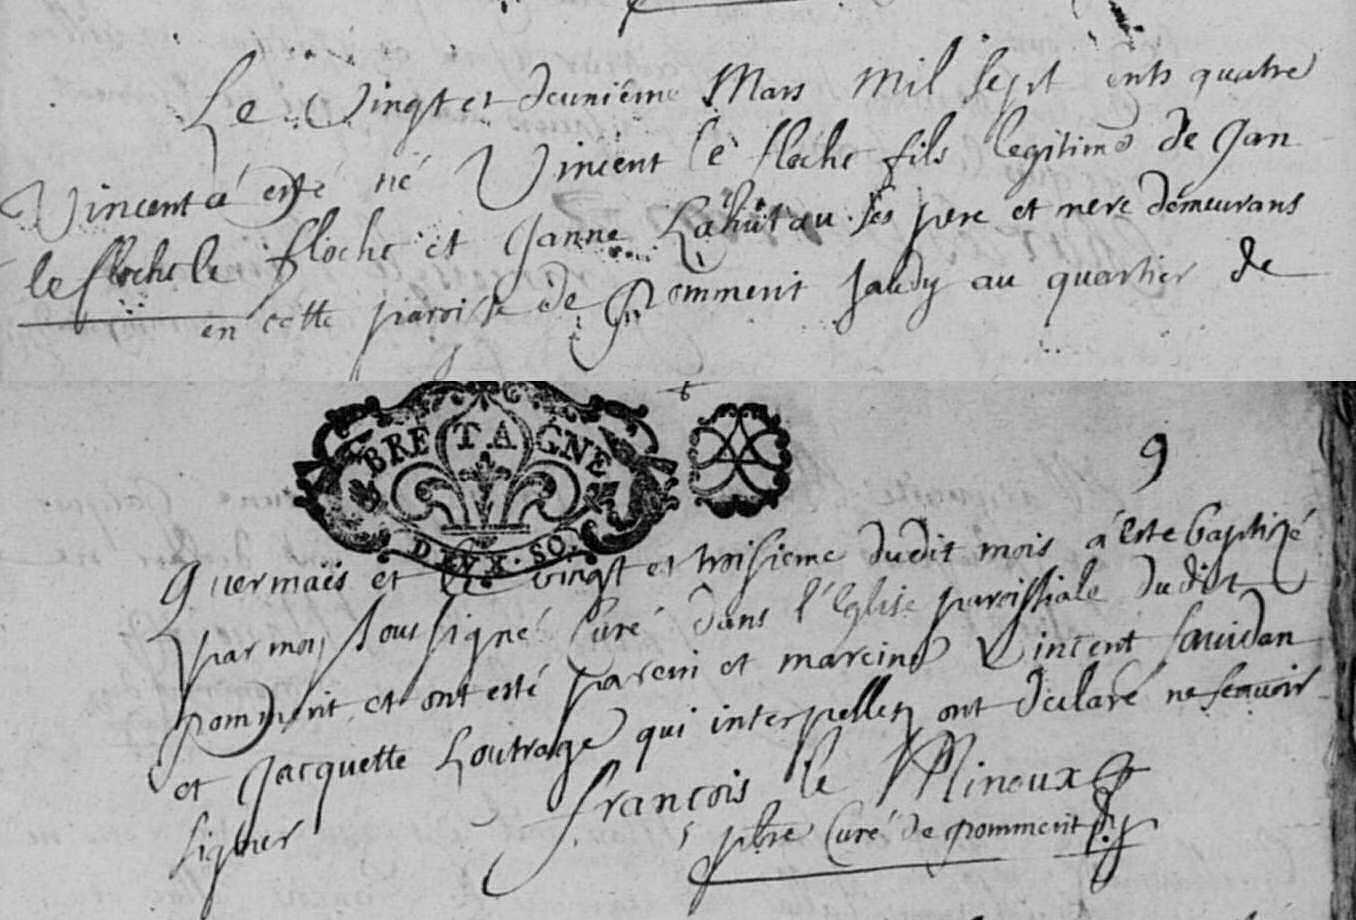 Le Vingt et deuniême Mars Mil sept cents quatre
Vincent a esté né Vincent le floche fils legitime de Jan
le floche le floche et Janne Lahûtau ses pere et mere demeurans
en cette paroisse de Pomment Jaudy au quartier de
9
BRETAGNE
DEUX·SO.
Quermais et le vingt et troisieme dudit mois á este baptizé
par moy soussigné Curé dans l'Eglise paroissiale dudit
pomment et ont esté parein et mareine Vincent sauidan
et Jacquette Loutrage qui interpellez ont declaré ne scauoir
signer
francois le Mineux
pbre Curé de pomment Jdy